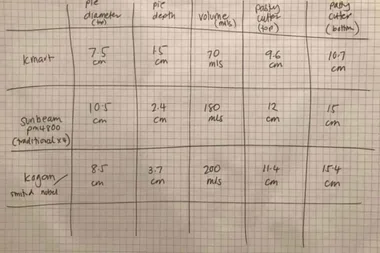 pie diameter (top) pie depth volume (mls) pastry cutter (top) pastry cutter (bottom)
kmart 7.5 cm 1.5 cm 70 mls 9.6 cm 10.7 cm
sunbeam pm4800 (traditional x 4) 10.5 cm 2.4 cm 180 mls 12 cm 15 cm
kogan/ 8.5 cm 3.7 cm 200 mls 11.4 cm 15.4 cm